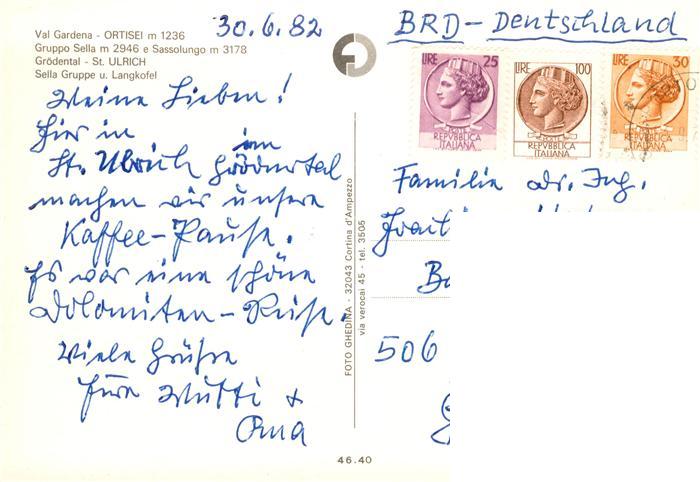 Val Gardena - ORTISEI m 1236
Gruppo Sella m 2946 e Sassolungo m 3178
Grödental - St. ULRICH
Sella Gruppe u. Langkofel
30.6.82
Meine Lieben!
Hier in
St. Ulrich im Grödnertal
machen wir unsere
Kaffee-Pause.
Es war eine schöne
Dolomiten-Reise.
Viele Grüße
Eure Mutti +
Oma
FOTO GHEDINA - 32043 Cortina d'Ampezzo
via verocai 45 - tel. 3505
46.40
BRD-Deutschland
LIRE 25
REPVBBLICA
ITALIANA
LIRE 100
REPVBBLICA
ITALIANA
LIRE 30
REPVBBLICA
ITALIANA
Familie Dr. Ing.
506